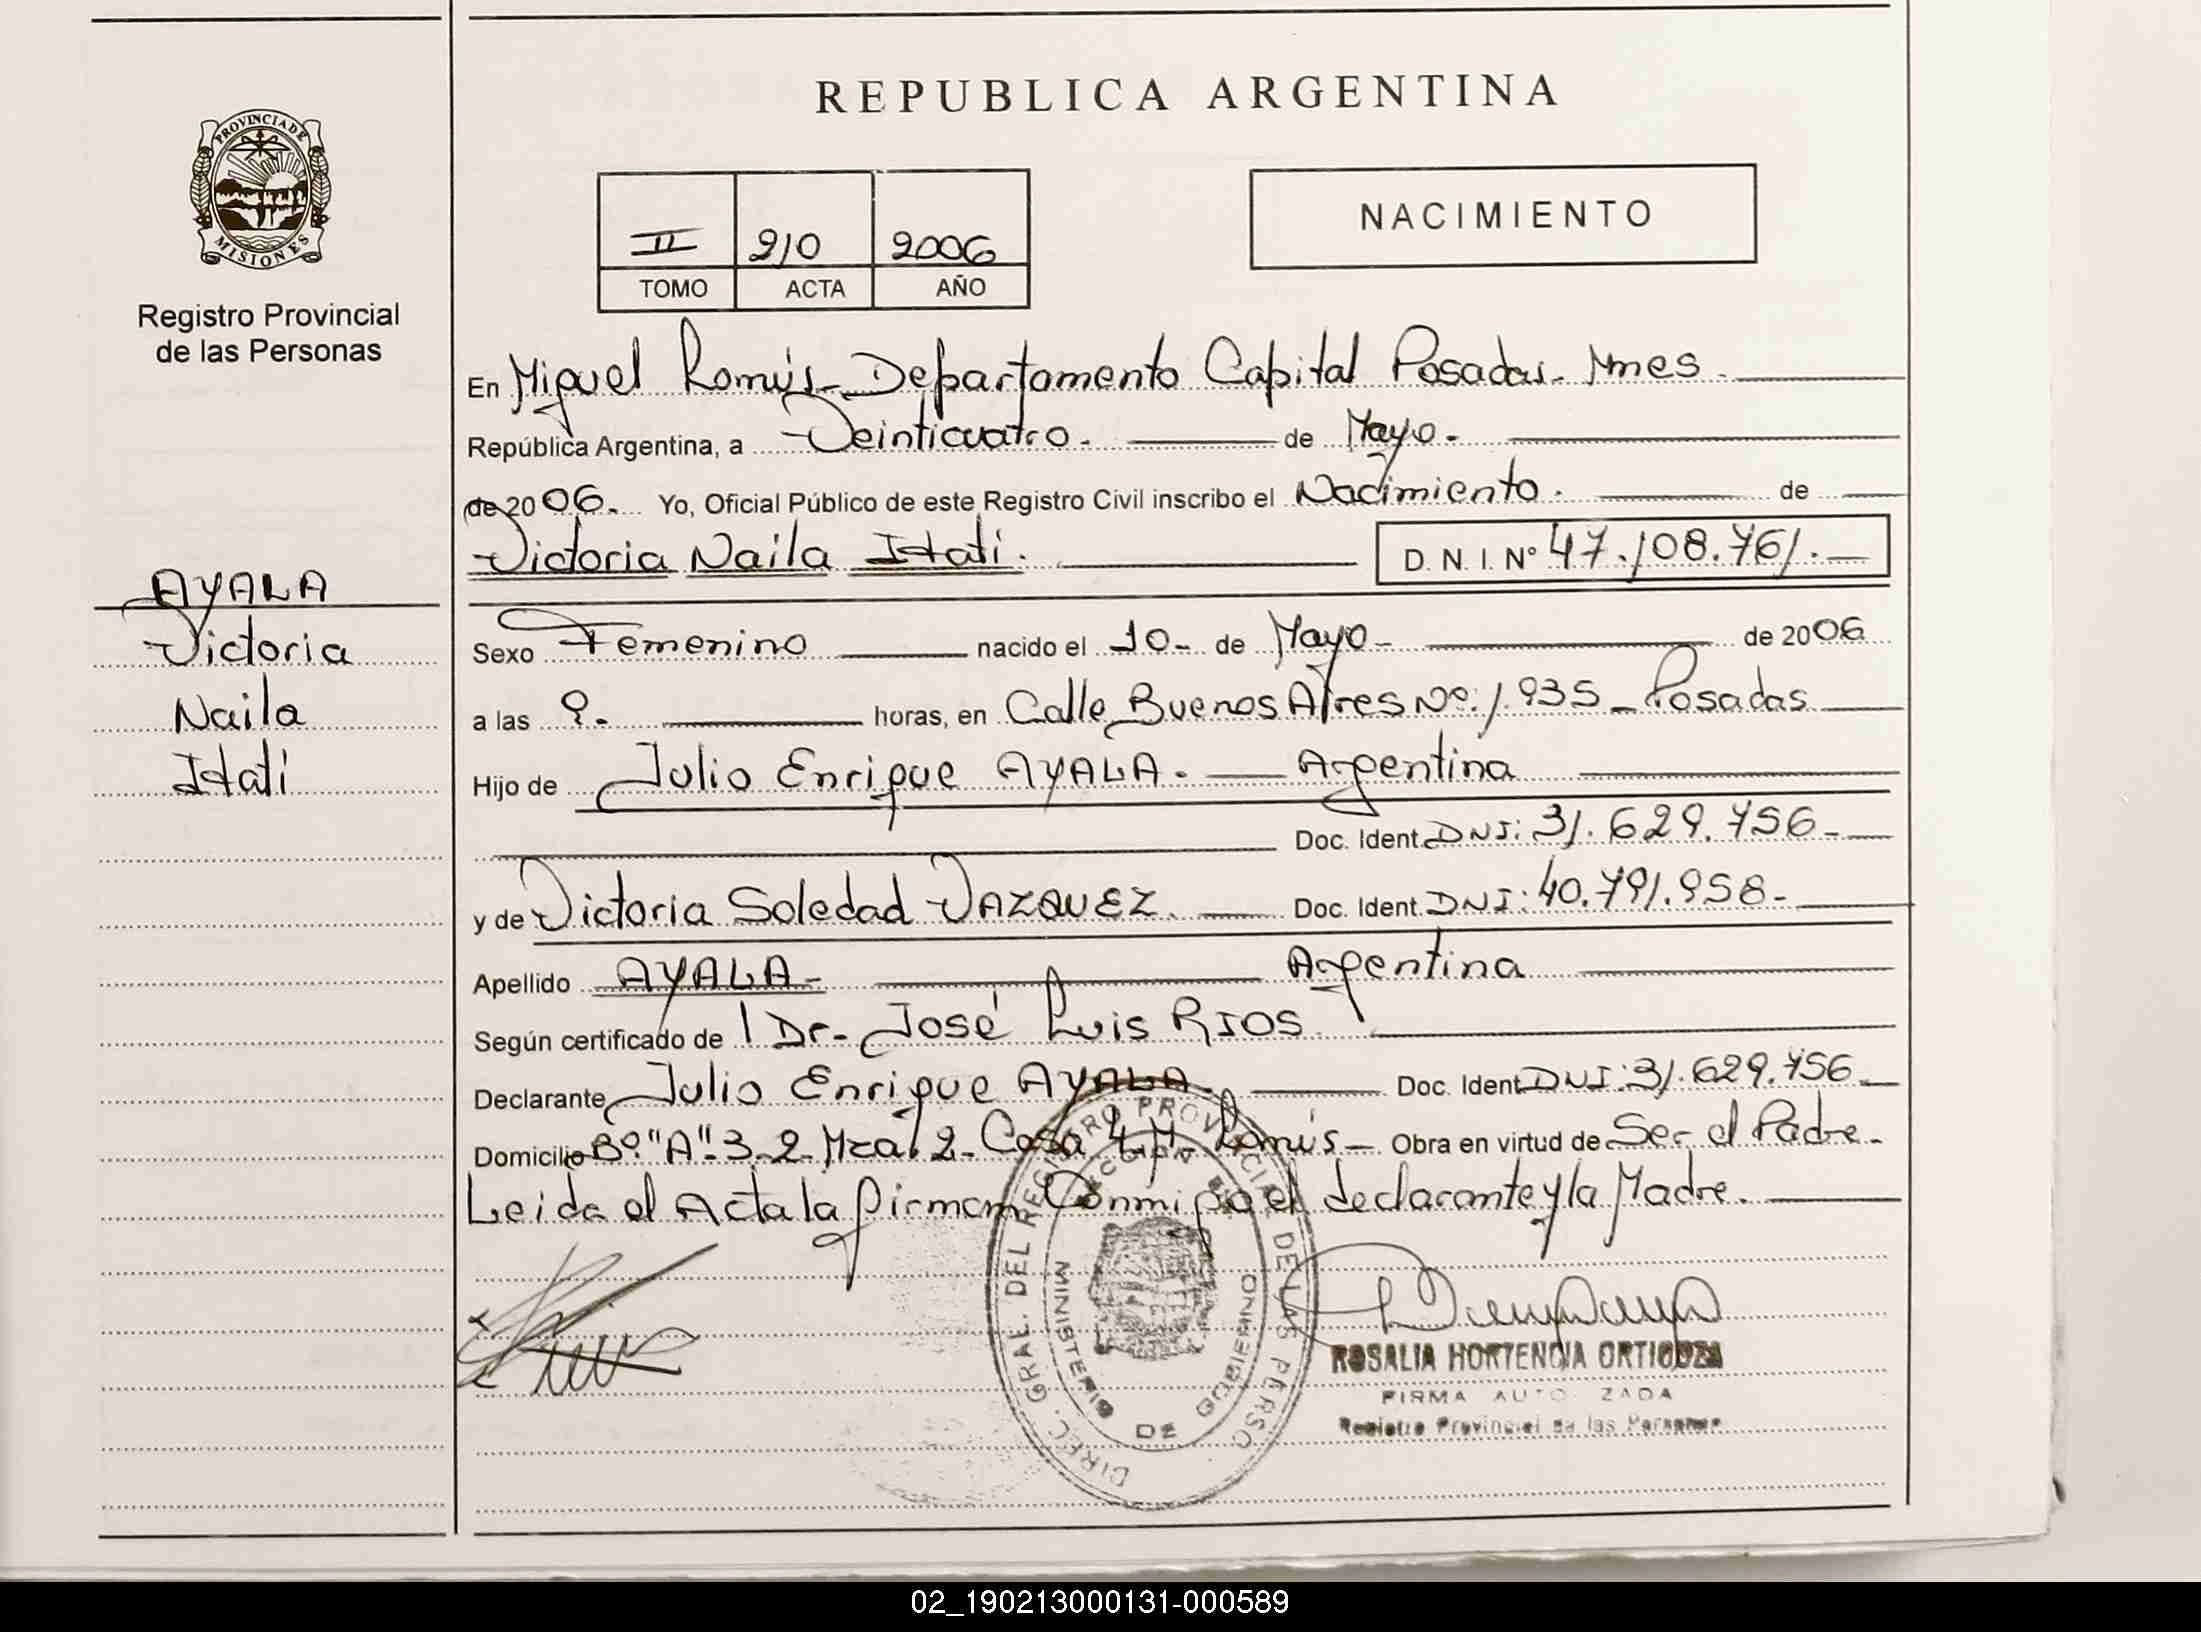 REPUBLICA ARGENTINA
PROVINCIA DE MISIONES
Registro Provincial
de las Personas
II 210 2006
TOMO ACTA AÑO
NACIMIENTO
En Miguel Lanús - Departamento Capital Posadas - Mnes.
República Argentina, a Veinticuatro. de Mayo.
de 2006. Yo, Oficial Público de este Registro Civil inscribo el Nacimiento. de
Victoria Naila Itatí. D. N. I. Nº 47.108.761.
AYALA
Victoria
Naila
Itatí
Sexo Femenino nacido el 10- de Mayo- de 2006
a las 9. horas, en Calle Buenos Aires Nº: 1.935 - Posadas
Hijo de Julio Enrique AYALA. Argentina
Doc. Ident. DNI: 31.629.756-
y de Victoria Soledad VAZQUEZ. Doc. Ident. DNI: 40.791.958-
Apellido AYALA- Argentina
Según certificado de l Dr. José Luis RIOS.
Declarante Julio Enrique AYALA. Doc. Ident DNI: 31.629.756-
Domicilio Bº "A" 3-2 Mza 2- Casa 4 M Lanús - Obra en virtud de Ser el Padre-
Leida el Acta la firman Conmigo el declarante y la Madre.
DIREC. GRAL. DEL REGISTRO PROVINCIAL DE LAS PERSO
MINISTERIO DE GOBIERNO
ROSALIA HORTENCIA ORTIGOZA
FIRMA AUTO ZADA
Registro Provincial de las Personas
02_190213000131-000589